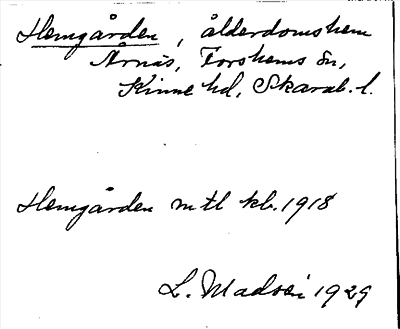 Hemgården, ålderdomshem
Årnäs, Forshems sn,
Kinne hd, Skarab. l.
Hemgården mtl kb. 1918
L. Madsén 1929